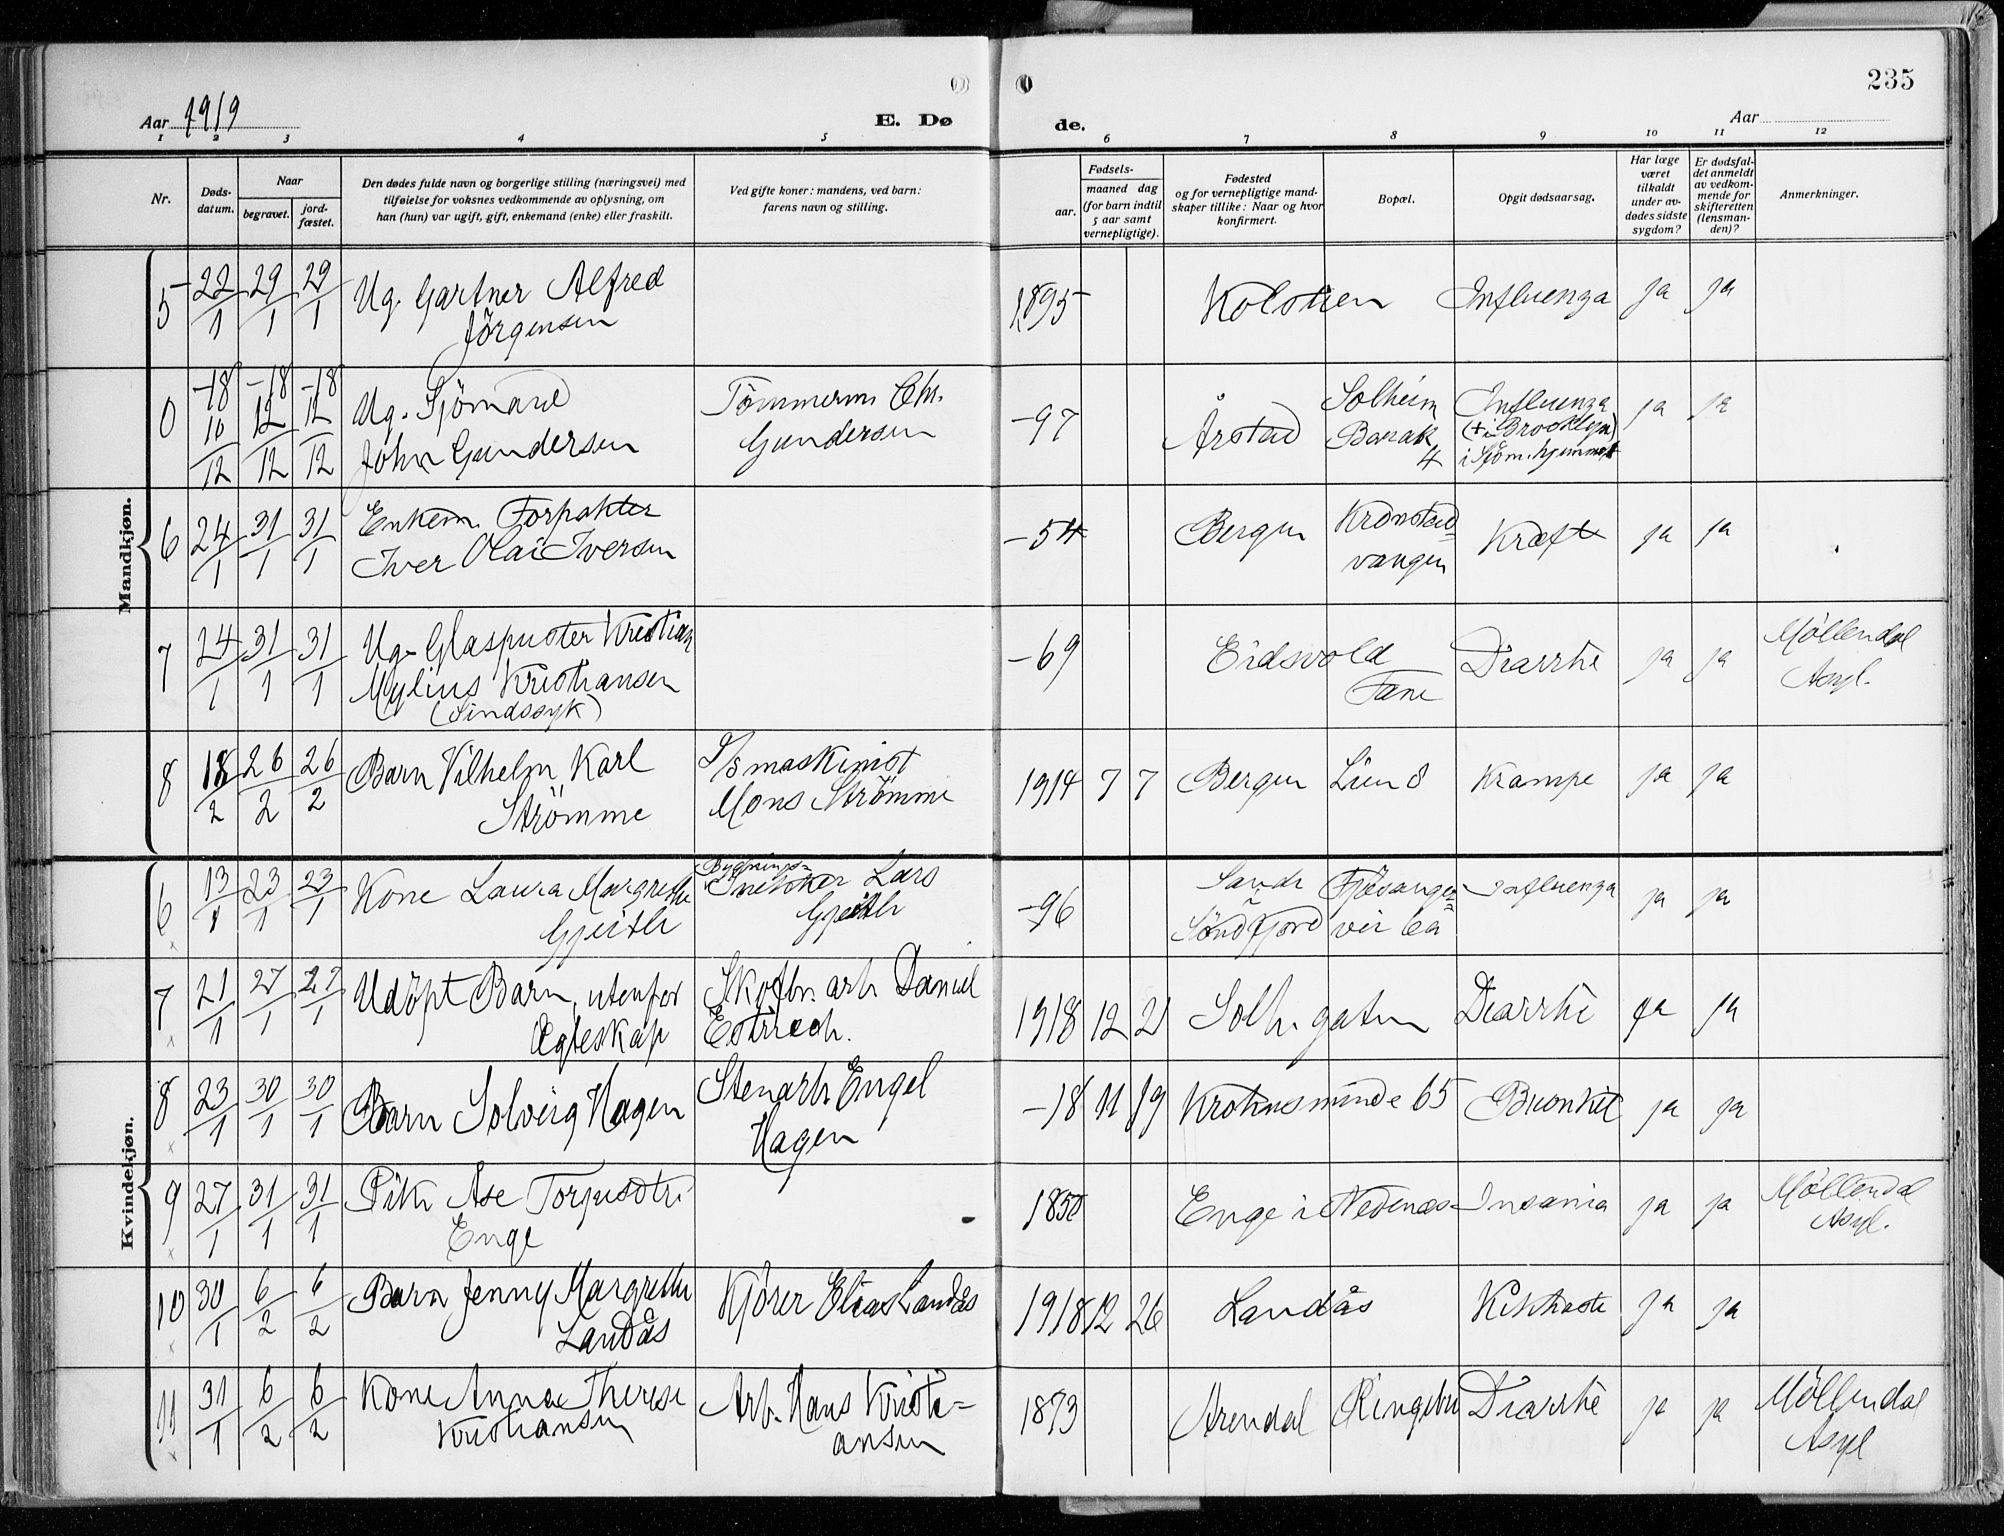 235
Aar 1919
E. Dø
de.
Aar
1 2 3 4 5 6 7 8 9 10 11 12
Nr.
Døds-
datum.
Naar
begravet.
jord-
fæstet.
Den dødes fulde navn og borgerlige stilling (næringsvei) med
tilføielse for voksnes vedkommende av oplysning, om
han (hun) var ugift, gift, enkemand (enke) eller fraskilt.
Ved gifte koner: mandens, ved barn:
farens navn og stilling.
Fødsels-
aar.
maaned dag
(for barn indtil
5 aar samt
vernepligtige).
Fødested
og for vernepligtige mand-
skaper tillike: Naar og hvor
konfirmert.
Bopæl.
Opgit dødsaarsag.
Har læge
været
tilkaldt
under av-
dødes sidste
sygdom?
Er dødsfal-
det anmeldt
av vedkom-
mende for
skifteretten
(lensman-
den)?
Anmerkninger.
Mandkjøn.
5 22/1 29/1 29/1 Ug. Gartner Alfred
Jörgensen
1895 Kolstien Influenza ja ja
0 -18 10/12 -18 12/12 -18 12/12 Ug. Sjömand
John Gundersen
Tömmerm. Chr.
Gundersen
-97 Årstad
Solheim
Barak
4
Influenza
(+ i Brooklyn)
i Sjöm.hjemmet
ja ja
6 24/1 31/1 31/1 Enkem. Forpakter
Iver Olai Iversen
-54 Bergen
Kronstad-
vangen
Kræft ja ja
7 24/1 31/1 31/1 Ug. Glaspuster Kristian
Mylius Kristiansen
(Sindssyk)
-69 Eidsvold
Fane
Diarrhe ja ja
Möllendal
Asyl.
8 18/2 26/2 26/2 Barn Vilhelm Karl
Strömme
D/S maskinist
Mons Strömme
1914 7 7 Bergen Lund Krampe ja ja
Kvindekjøn.
6 13/1 23/1 23/1 Kone Laura Margrethe
Gjeitle
Bygnings-
snekker Lars
Gjeitle
-96
Sande
Söndfjord
Fjösanger-
vei 6a
Influenza ja ja
7 21/1 27/1 27/1 Udöpt Barn, utenfor
Ægteskap
Skofbr. arb. Daniel
Estrech.
1918 12 21 Solh. gaten Diarrhe ja ja
8 23/1 30/1 30/1 Barn Solveig Hagen
Stenarb. Engel
Hagen
-18 11 19 Krohnsminde 65 Bronkit ja ja
9 27/1 31/1 31/1 Pike Åse Torjusdtr.
Enge
1850 Enge i Nedenæs Insania ja ja
Möllendal
Asyl.
10 30/1 6/2 6/2 Barn Jenny Margrethe
Landås
Kjörer Elias Landås
1918 12 26 Landås Kikhoste ja ja
11 31/1 6/2 6/2 Kone Anna Therese
Kristiansen
Arb. Hans Kristi-
ansen
1873 Arendal Ringebu Diarrhe ja ja
Möllendal
Asyl